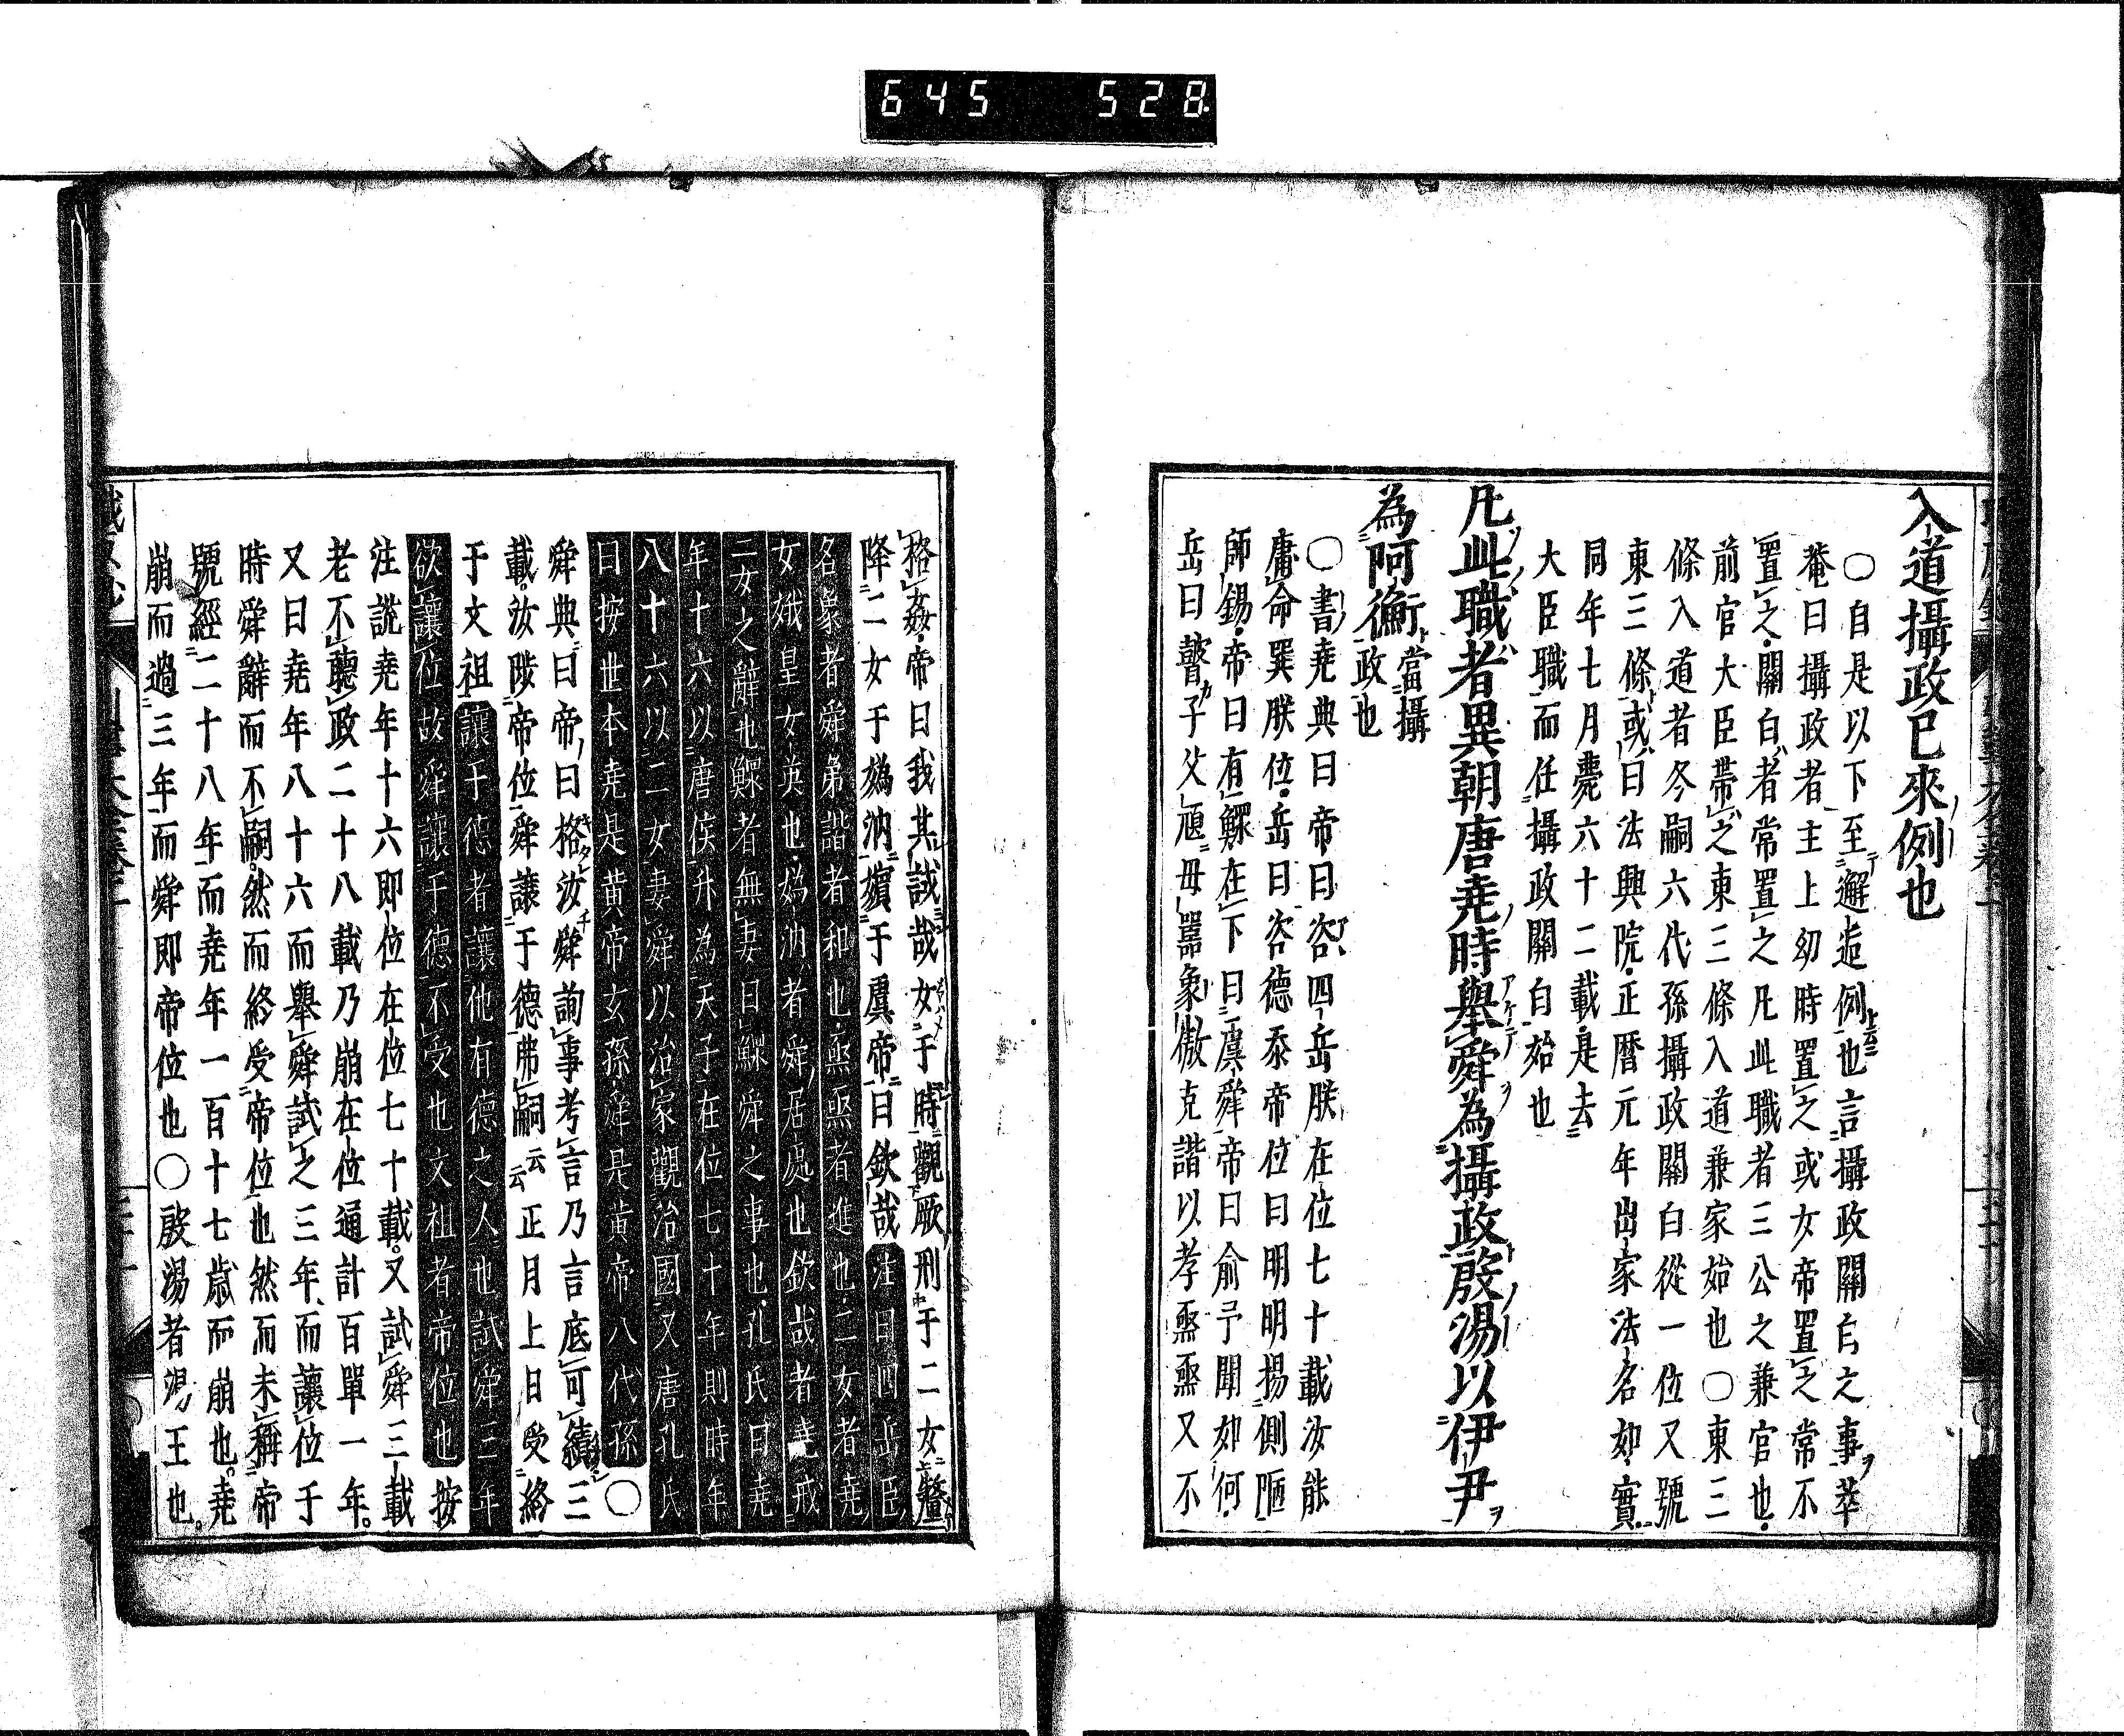 645 528
入道攝政已來例也
○自是以下至邂逅例也言攝政關白之事莘
菴曰攝政者主上幼時置之或女帝置之常不
置之關白者常置之凡此職者三公之兼官也
前官大臣帶之東三條入道兼家始也○東三
條入道者冬嗣六代孫攝政關白從一位又號
東三條或曰法興院正暦元年出家法名如實
同年七月薨六十二載是去
大臣職而任攝政關白始也
凡此職者異朝唐堯時舉舜為攝政殷湯以伊尹
為阿衡當攝政也
○書堯典曰帝曰咨四岳朕在位七十載汝能
庸命巽朕位岳曰否德忝帝位曰明明揚側陋
師錫帝曰有鰥在下曰虞舜帝曰俞予聞如何
岳曰瞽子父頑母嚚象傲克諧以孝烝烝乂不
格姦帝曰我其試哉女于時觀厥刑于二女釐
降二女于媯汭嬪于虞帝曰欽哉注曰四岳臣
名象者舜弟諧者和也烝烝者進也二女者堯
女娥皇女英也媯汭者舜居處也欽哉者堯戒
二女之辭也鰥者無妻曰鰥舜之事也孔氏曰堯
年十六以唐侯升為天子在位七十年則時年
八十六以二女妻舜以治家觀治國又唐孔氏
曰按世本堯是黄帝玄孫舜是黄帝八代孫○
舜典曰帝曰格汝舜詢事考言乃言底可績三
載汝陟帝位舜讓于德弗嗣云云正月上日受終
于文祖讓于德者讓他有德之人也試舜三年
欲讓位故舜讓于德不受也文祖者帝位也按
注説堯年十六即位在位七十載又試舜三載
老不聽政二十八載乃崩在位通計百單一年
又曰堯年八十六而舉舜試之三年而讓位于
時舜辭而不嗣然而終受帝位也然而未稱帝
號經二十八年而堯年一百十七歳而崩也堯
崩而過三年而舜即帝位也○殷湯者湯王也